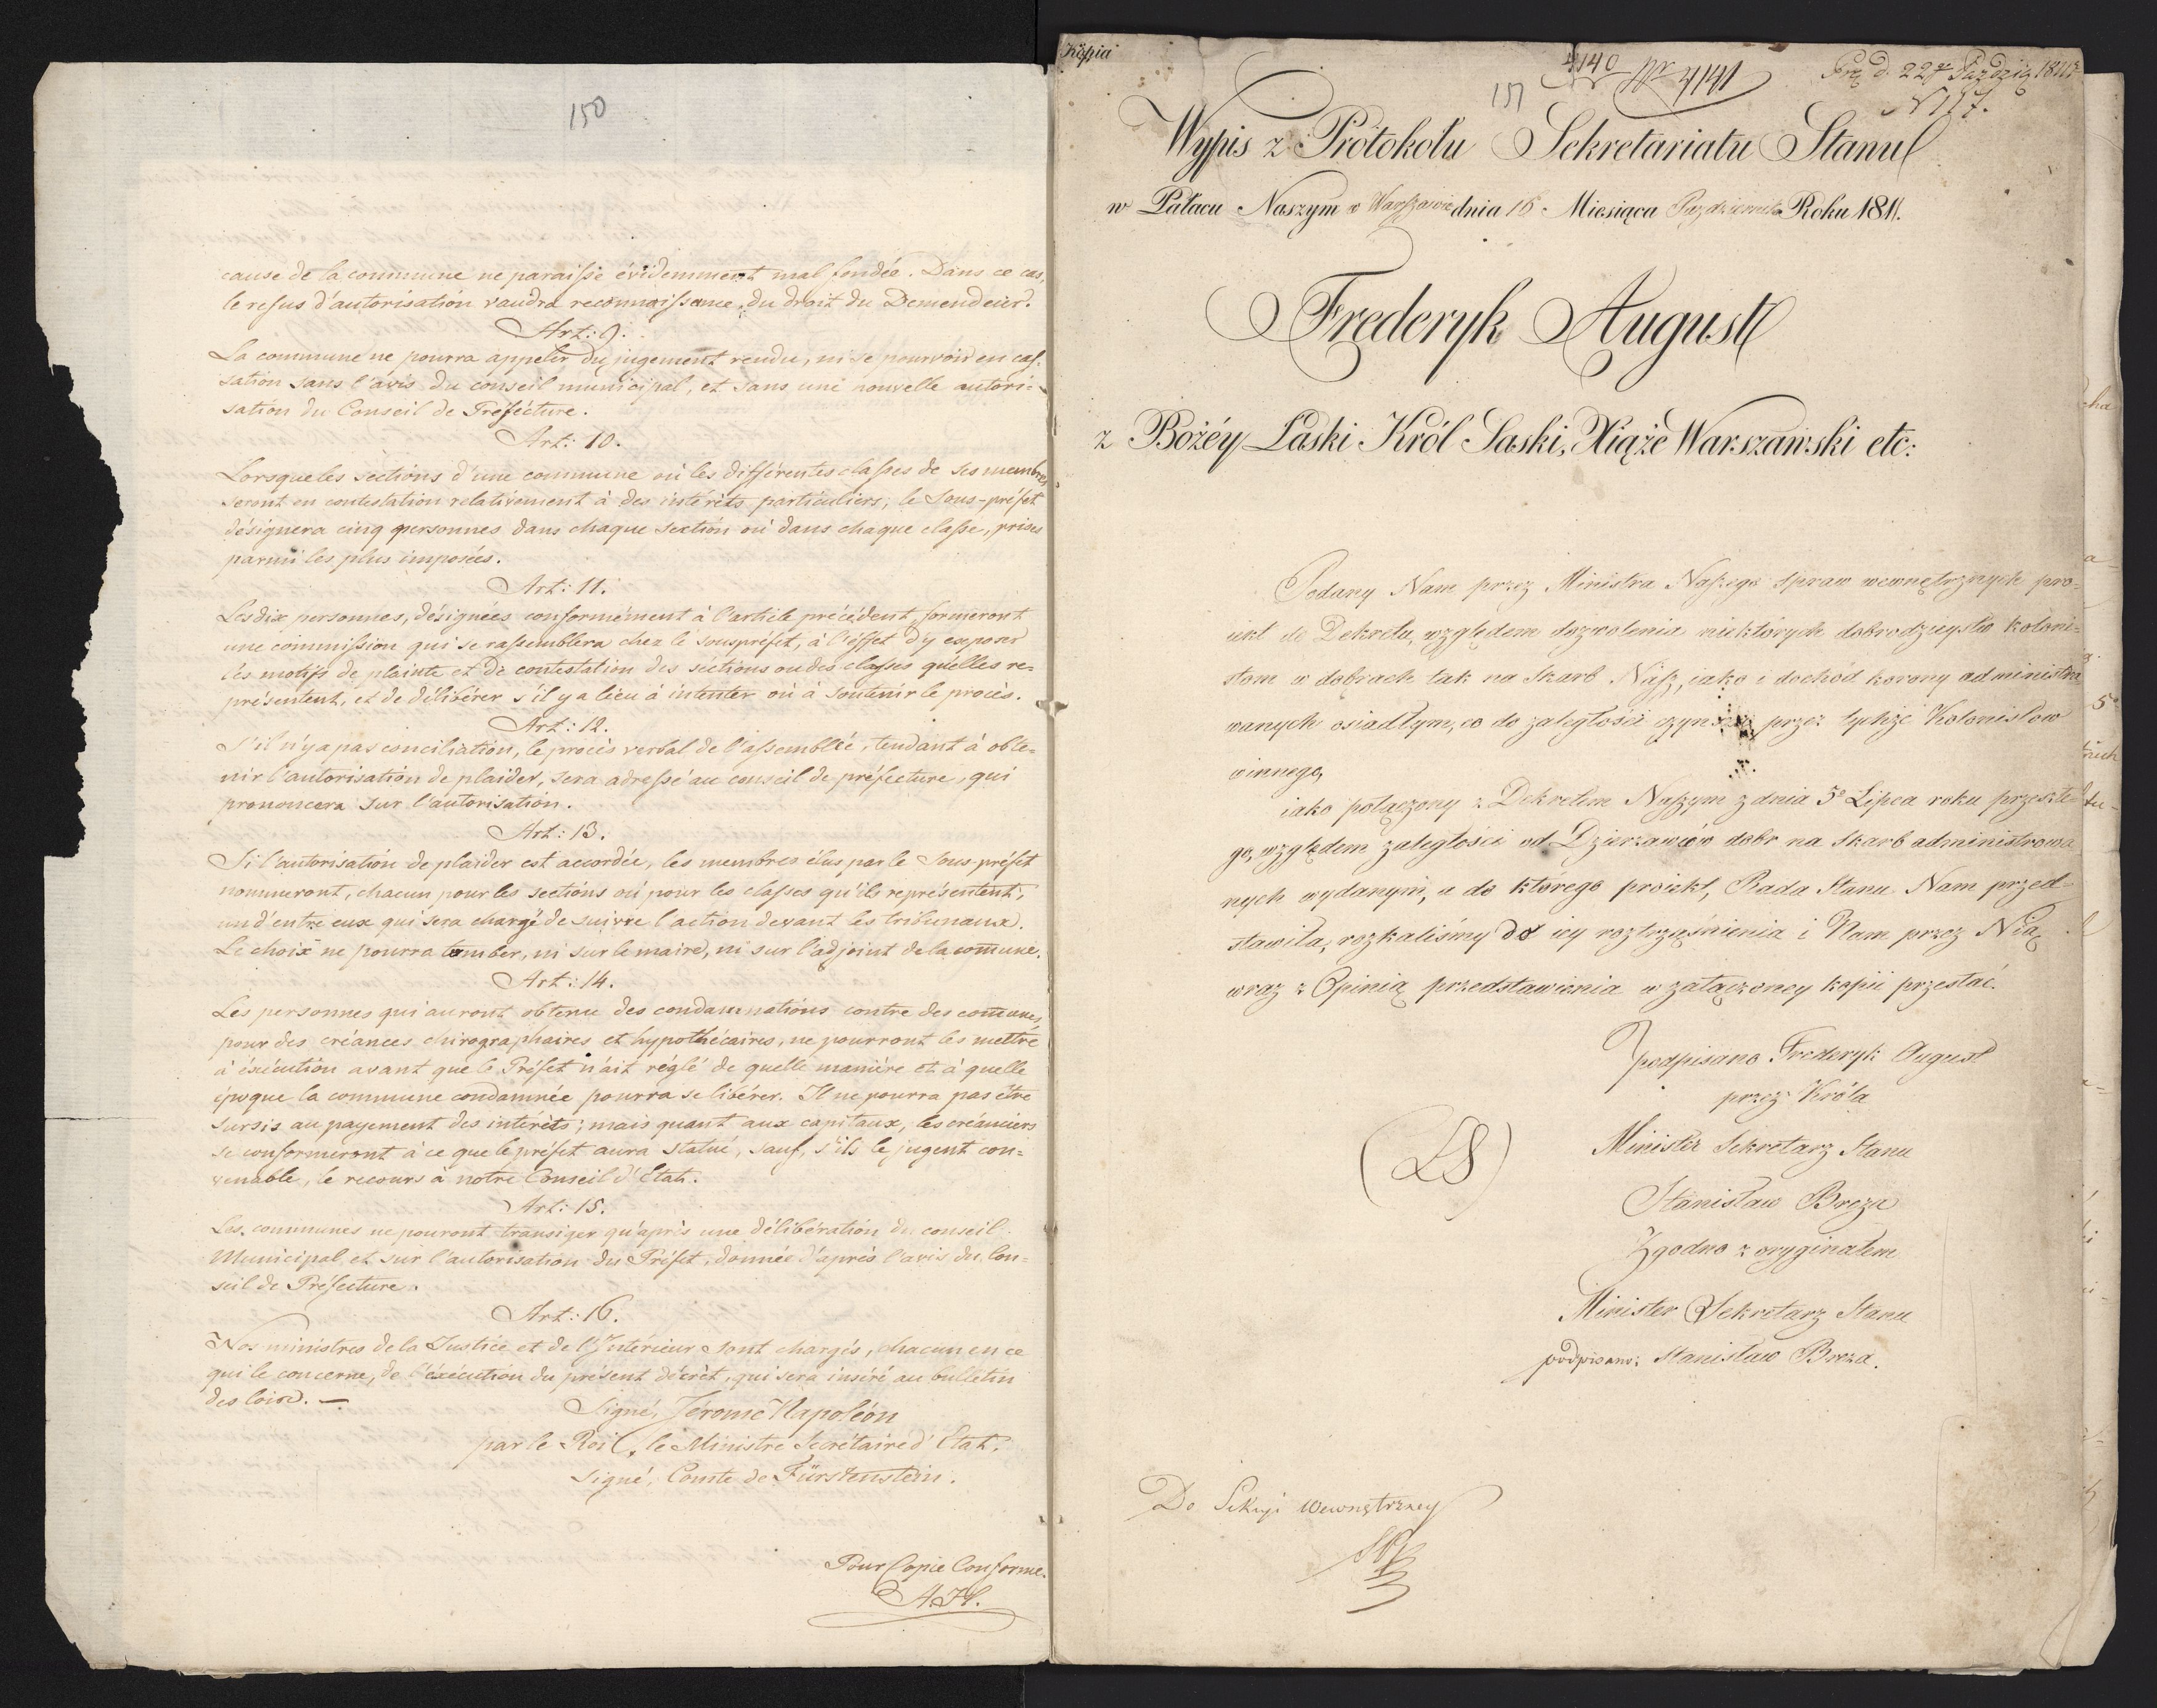 150
cause de la commune ne paraisse évidemment mal fondée. Dans ce cas,
le refus d'autorisation vaudra reconnaissance du droit du Demendeur.
Art: 9.
La commune ne pourra appeler du jugement rendu, ni se pourvoir en cas-
sation sans l'avis du conseil municipal, et sans une nouvelle autori-
sation du Conseil de Préfécture.
Art: 10.
Lorsque les sections d'une commune ou les différentes classes de ses membres
seront en contestation relativement à des intérêts particuliers, le Sous-préfet
désignera cinq personnes dans chaque section ou dans chaque classe, prises
parmi les plus imposées.
Art: 11.
Les dix personnes, désignées conformément à l'article précédent formeront
une commission qui se rassemblera chez le souspréfet, à l'éffet d'y exposer
les motifs de plainte et de contestation des séctions ou des classes qu'elles re-
présentent, et de délibérer s'il y a lieu à intenter ou à soutenir le procès.
Art: 12.
S'il n'y a pas conciliation, le procès verbal de l'assemblée, tendant à obte-
nir l'autorisation de plaider, sera adressé au conseil de préfecture, qui
prononcera sur l'autorisation.
Art: 13.
Si l'autorisation de plaider est accordée, les membres élus par le Sous-préfet
nommeront, chacun pour les sections ou pour les classes qu'ils représentent,
un d'entre eux qui sera chargé de suivre l'action devant les tribunaux.
Le choix ne pourra tomber, ni sur le maire, ni sur l'adjoint de la com̄une.
Art: 14.
Les personnes qui auront obtenu des condamnations contre des com̄unes,
pour des créances chirographaires et hypothécaires, ne pourront les mettre
à éxécution avant que le Préfet n'ait réglé de quelle manière et à quelle
époque la commune condamnée pourra se libérer. Il ne pourra pas être
sursis au payement des intérêts; mais quant aux capitaux, les créanciers
se conformeront à ce que le préfet aura statué, sauf, s'ils le jugent con-
venable, le recours à notre Conseil d'Etat.
Art: 15.
Les communes ne pouront transiger qu'après une délibération du conseil
Municipal et sur l'autorisation du Préfet, donnée d'après l'avis du Con-
seil de Préfecture.
Art: 16.
Nos ministres de la Justice et de l'Intérieur sont chargés, chacun en ce
qui le concerne, de l'éxécution du présent décrèt, qui sera inséré au bulletin
des loix. —
Signé, Jérome Napoléon
par le Roi, le Ministre Secrétaire d'Etat,
signé, Comte de Fürstenstein.
Pour Copie Conforme.
Kopia
4140
Nr 4141
151
Prz d. 22go Paźdz: 1811
N 117.
Wypis z Protokołu Sekretariatu Stanu
w Pałacu Naszym w Warszawie dnia 16 Miesiąca Października Roku 1811.
Frederyk August
z Bożéy Łaski Król Saski, Xiąże Warszawski etc:
Podany Nam przez Ministra Naszego spraw wewnętrznych pro-
iekt do Dekretu, względem dozwolenia niektórych dobrodzieystw koloni-
stom w dobrach tak na Skarb Nasz, iako i dochód korony administro
wanych osiadłym, co do zaległości czynszu przez tychże Kolonistow
winnego,
iako połączony z Dekretem Naszym z dnia 5o Lipca roku przeszłe-
go, względem zaległości od Dzierzawców dobr na skarb administrowa
nych wydanym, a do którego proiekt, Rada Stanu Nam przed-
stawiła, rozkaliśmy do iey roztrząśnienia i Nam przez Nią
wraz z Opinią przedstawienia w załączoney kopii przesłać.
podpisano Frederyk August
przez Króla
(LS)
Minister Sekretarz Stanu
Stanisław Breza
Zgodno z oryginałem
Minister Sekretarz Stanu
podpisano: Stanisław Breza.
Do Sekcyi Wewnętrzney